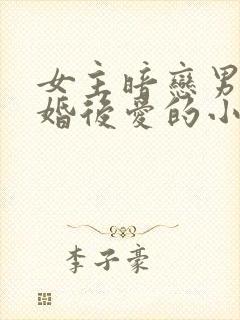 女主暗戀男
婚後愛的小
李子豪